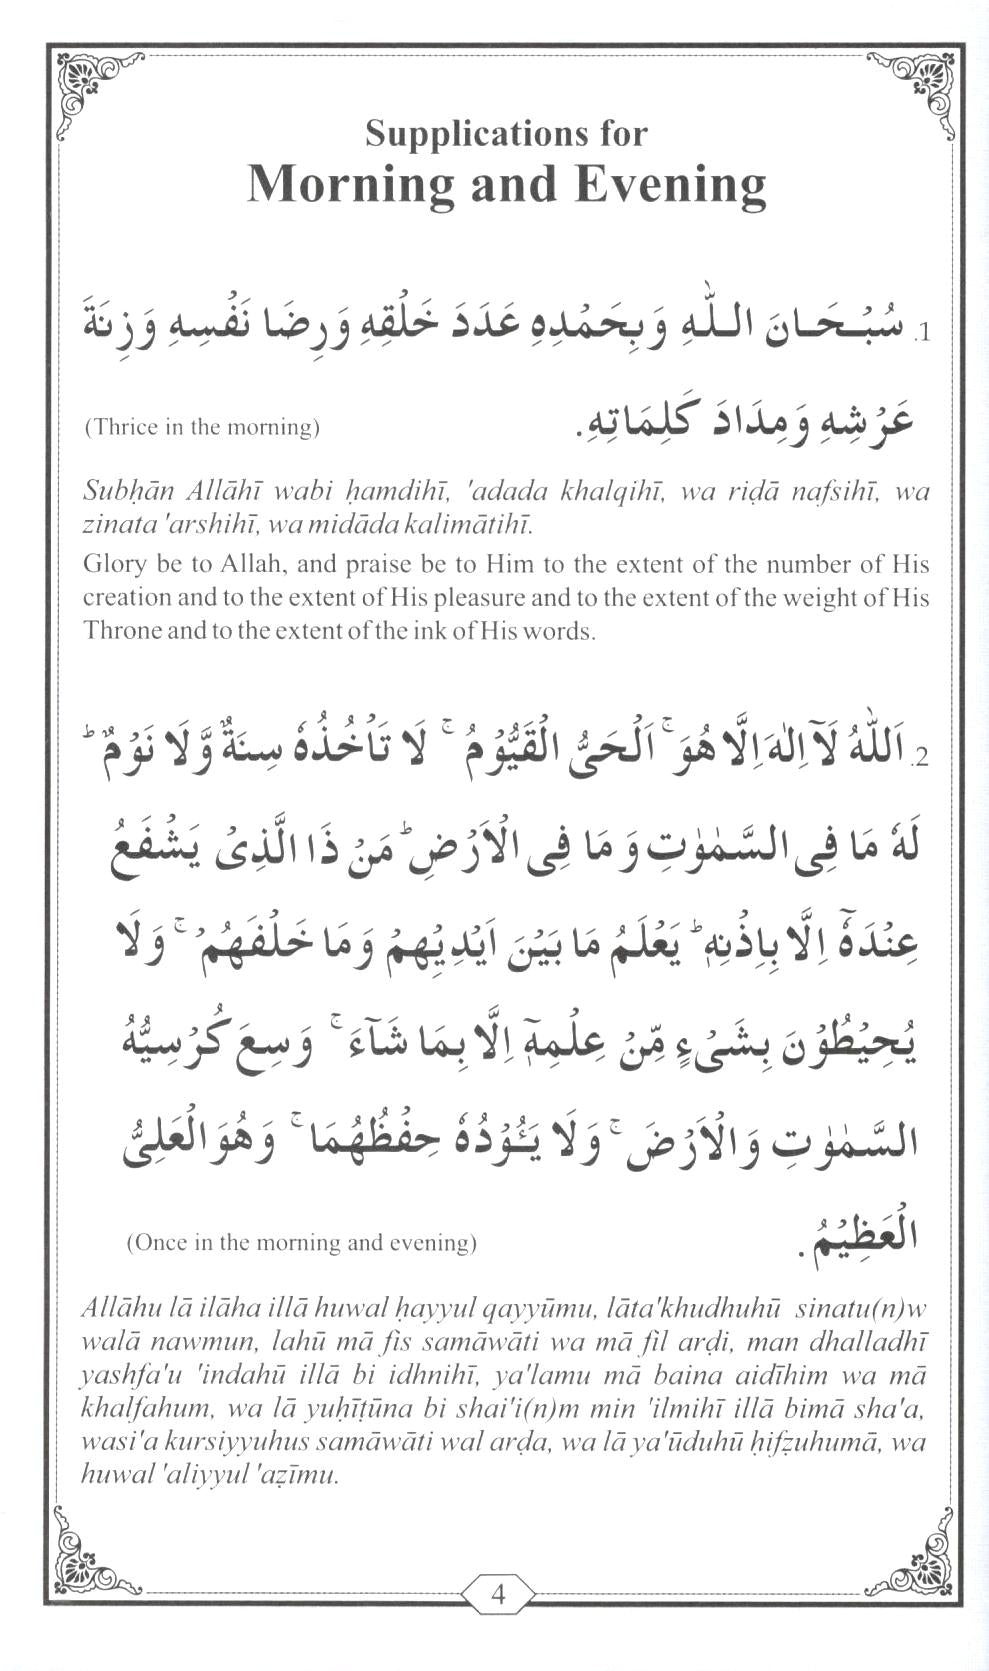 Supplications for
Morning and Evening
1. سُبْحَانَ اللّٰهِ وَبِحَمْدِهِ عَدَدَ خَلْقِهِ وَرِضَا نَفْسِهِ وَزِنَةَ
عَرْشِهِ وَمِدَادَ كَلِمَاتِهِ. (Thrice in the morning)
Subḥān Allāhī wabi ḥamdihī, 'adada khalqihī, wa riḍā nafsihī, wa
zinata 'arshihī, wa midāda kalimātihī.
Glory be to Allah, and praise be to Him to the extent of the number of His
creation and to the extent of His pleasure and to the extent of the weight of His
Throne and to the extent of the ink of His words.
2. اَللّٰهُ لَآ اِلٰهَ اِلَّا هُوَ ۚ اَلْحَىُّ الْقَيُّوْمُ ۚ لَا تَاْخُذُهٗ سِنَةٌ وَّلَا نَوْمٌ ؕ
لَهٗ مَا فِى السَّمٰوٰتِ وَمَا فِى الْاَرْضِ ؕ مَنْ ذَا الَّذِىْ يَشْفَعُ
عِنْدَهٗٓ اِلَّا بِاِذْنِهٖ ؕ يَعْلَمُ مَا بَيْنَ اَيْدِيْهِمْ وَمَا خَلْفَهُمْ ۚ وَلَا
يُحِيْطُوْنَ بِشَىْءٍ مِّنْ عِلْمِهٖٓ اِلَّا بِمَا شَآءَ ۚ وَسِعَ كُرْسِيُّهُ
السَّمٰوٰتِ وَالْاَرْضَ ۚ وَلَا يَـُٔوْدُهٗ حِفْظُهُمَا ۚ وَهُوَ الْعَلِىُّ
الْعَظِيْمُ. (Once in the morning and evening)
Allāhu lā ilāha illā huwal ḥayyul qayyūmu, lāta'khudhuhū sinatu(n)w
walā nawmun, lahū mā fis samāwāti wa mā fil arḍi, man dhalladhī
yashfa'u 'indahū illā bi idhnihī, ya'lamu mā baina aidīhim wa mā
khalfahum, wa lā yuḥīṭūna bi shai'i(n)m min 'ilmihī illā bimā sha'a,
wasi'a kursiyyuhus samāwāti wal arḍa, wa lā ya'ūduhū ḥifẓuhumā, wa
huwal 'aliyyul 'aẓīmu.
4